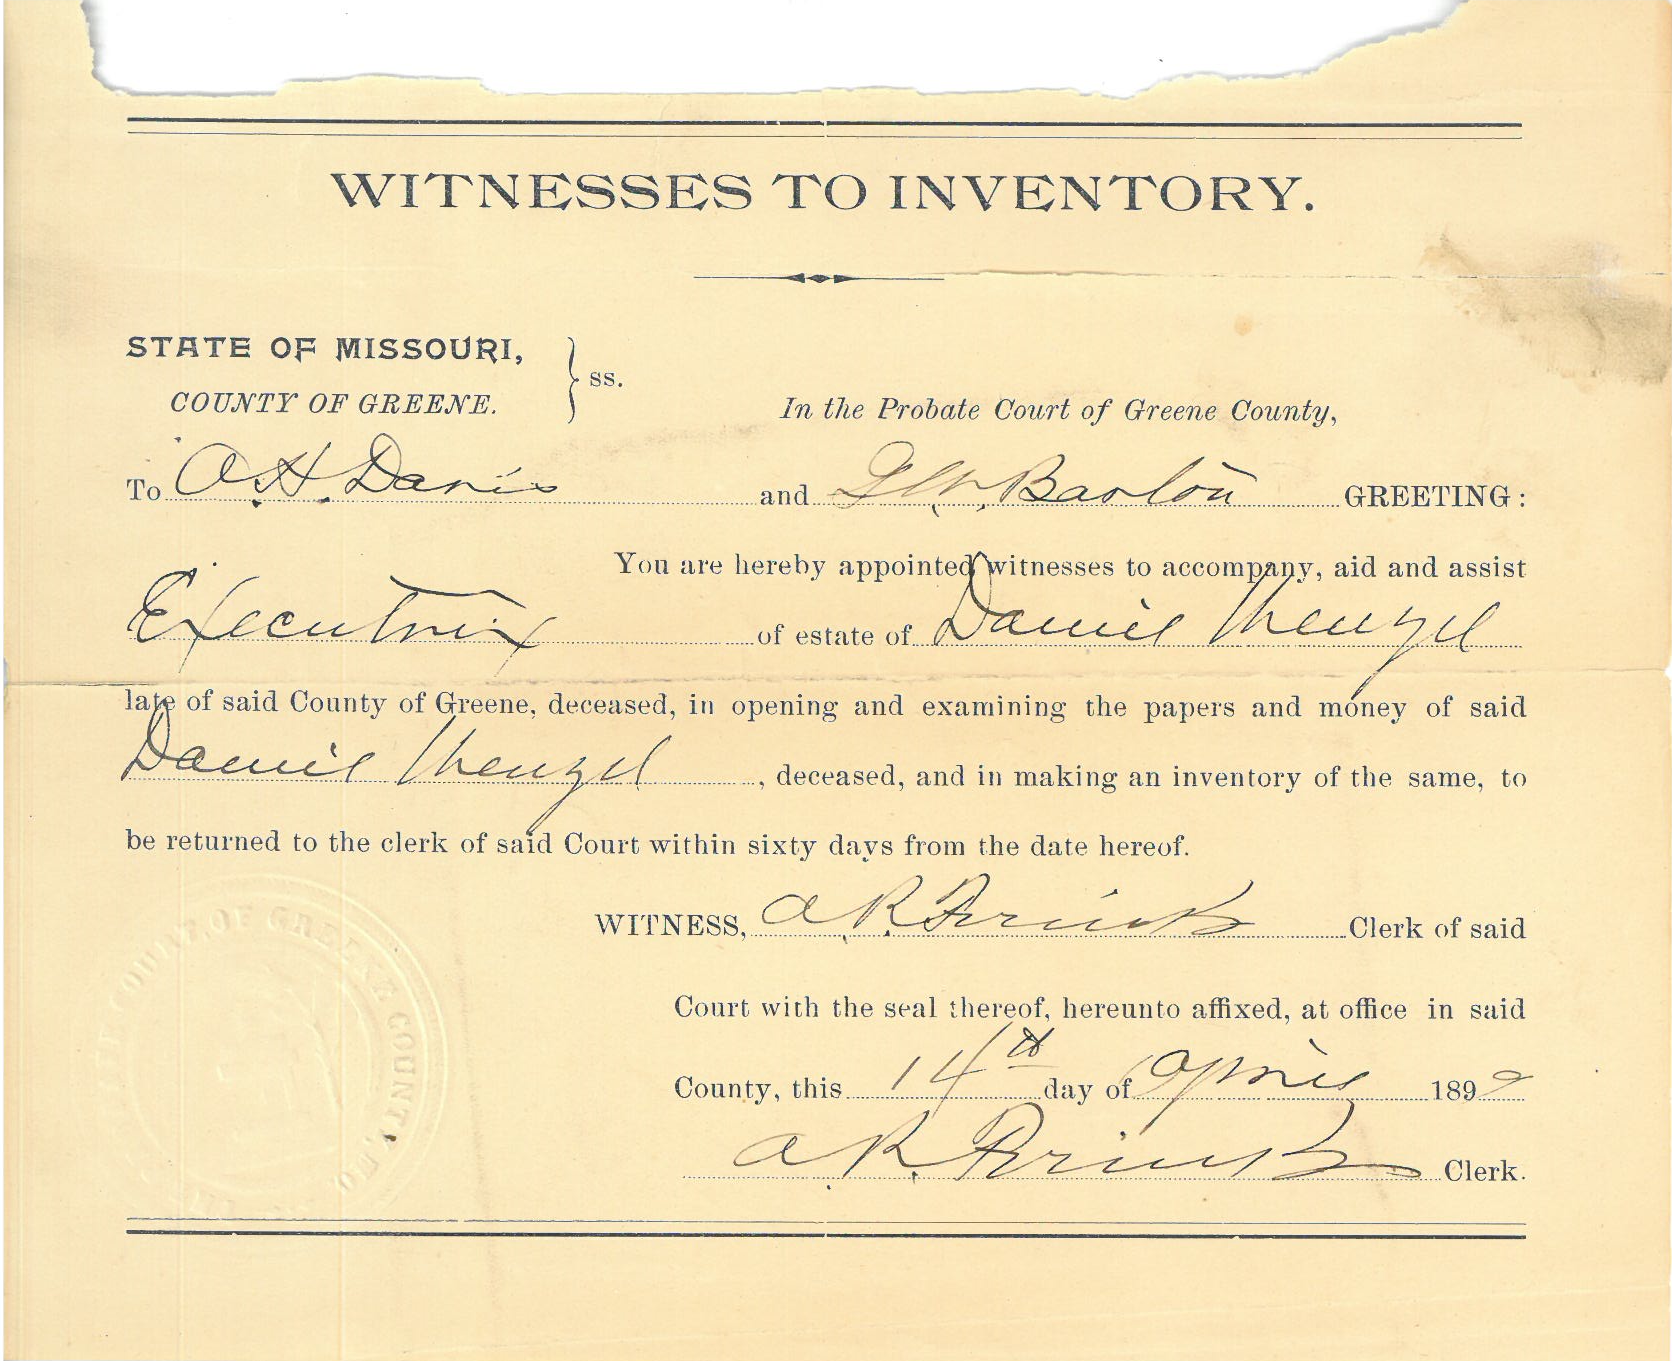 WITNESSES TO INVENTORY.
STATE OF MISSOURI,
COUNTY OF GREENE. } ss.
In the Probate Court of Greene County,
To A. H. Davis and G. W. Barton GREETING:
You are hereby appointed witnesses to accompany, aid and assist
Executrix of estate of Daniel Whenzel
late of said County of Greene, deceased, in opening and examining the papers and money of said
Daniel Whenzel, deceased, and in making an inventory of the same, to
be returned to the clerk of said Court within sixty days from the date hereof.
WITNESS, A. R. Clerk of said
Court with the seal thereof, hereunto affixed, at office in said
County, this 14th day of April 1899
A. R. Clerk.
COURT OF GREENE COUNTY, MO.